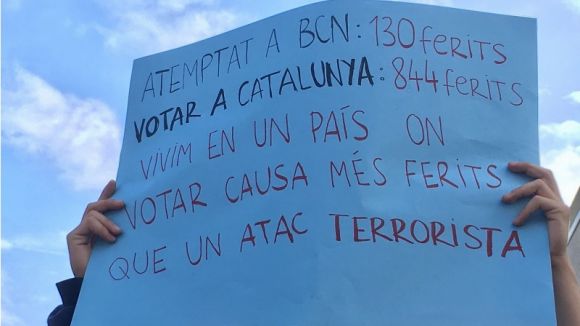 ATEMPTAT A BCN: 130 FERITS
VOTAR A CATALUNYA: 844 FERITS
VIVIM EN UN PAÍS ON
VOTAR CAUSA MÉS FERITS
QUE UN ATAC TERRORISTA